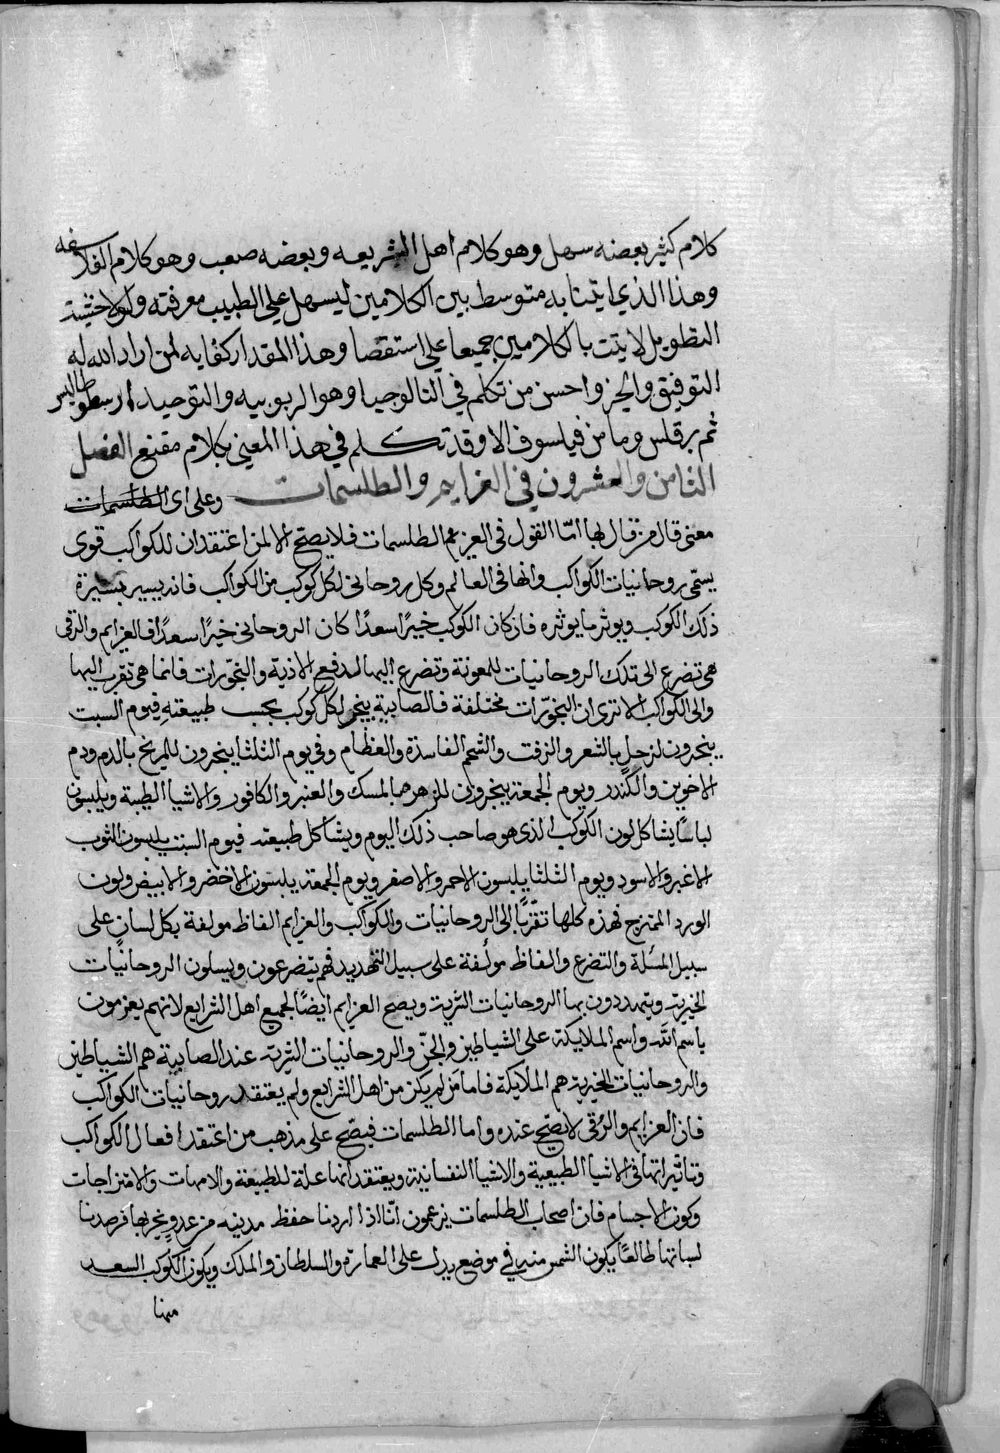 كلام كثير بعضه سهل وهو كلام اهل الشريعه وبعضه صعب وهو كلام الفلاسفه
وهذا الذي اتينا به متوسط بين الكلامين ليسهل على الطبيب معرفته ولولا خشية
التطويل لاتيت بالكلامين جميعا على استقصا وهذا المقدار كفايه لمن اراد الله له
التوفيق والخير واحسن من تكلم في الثالوجيا وهو الربوبيه والتوحيد ارسطوطاليس
ثم برقلس وما من فيلسوف الا وقد تكلم في هذا المعنى بكلام مقنع الفصل
الثامن والعشرون في العزايم والطلسمات وعلى اى الطلسمات
معنى قال من قال بها امّا القول في العزايم الطلسمات فلا يصحّ الا لمن اعتقد ان للكواكب قوى
يسمّى روحانيات الكواكب وانها في العالم وكل روحانى لكل كوكب من الكواكب فانه يسير بسيرة
ذلك الكوكب ويوثر ما يوثره فان كان الكوكب خيرًا سعدًا كان الروحانى خيرًا سعدًا فالعزايم والرقى
هى تضرع الى تلك الروحانيات للمعونة وتضرع اليها لدفع الاذية والبخورات فانما هى تقرب اليها
والى الكواكب الا ترى ان البخورات مختلفة فالصابية يبخر لكل كوكب بحسب طبيعته فيوم السبت
يبخرون لزحل بالشعر والزفت والشحم الفاسدة والعظام وفى يوم الثلثا يبخرون للمريخ بالدم ودم
الاخوين والكندر ويوم الجمعة يبخرون للزهره بالمسك والعنبر والكافور والاشيا الطيبة ويلبسون
لباسًا يشاكل لون الكوكب الذى هو صاحب ذلك اليوم ويشاكل طبيعته فيوم السبت يلبسون الثوب
الاغبر والاسود ويوم الثلثا يلبسون الاحمر والاصفر ويوم الجمعة يلبسون الاخضر والابيض ولون
الورد الممتزج فهذه كلها تقرّبًا الى الروحانيات والكواكب والعزايم الفاظ مولفة بكل لسان على
سبيل المسئلة والتضرع والفاظ مولفة على سبيل التهديد فهم يتضرعون ويسلون الروحانيات
الخيرية ويتهددون بها الروحانيات الشرية ويصح العزايم ايضًا لجميع اهل الشرايع لانهم يعزمون
باسم الله واسم الملايكة على الشياطين والجن والروحانيات الشرية عند الصابية هم الشياطين
والروحانيات الخيرية هم الملايكة فاما من لم يكن من اهل الشرايع ولم يعتقد روحانيات الكواكب
فان العزايم والرقى لا تصح عنده واما الطلسمات فيصح على مذهب من اعتقد افعال الكواكب
وتاثيراتها فى الاشيا الطبيعية والاشيا النفسانية ويعتقد انها علة للطبيعة والامهات والامتزاجات
وكون الاجسام فان اصحاب الطلسمات يزعمون انّا اذا اردنا حفظ مدينه من عدو يخربها فرصدنا
لبنائها طالعًا يكون الشمس منه في موضع يدل على العمارة والسلطان والملك ويكون الكوكب السعد
منها